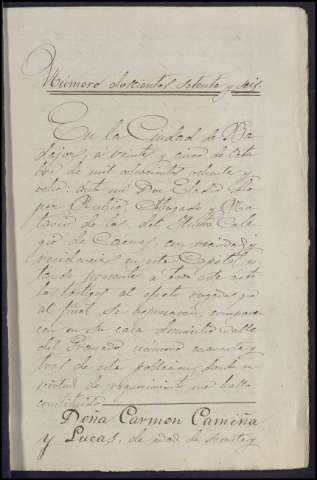 Número doscientos setenta y seis.
En la Ciudad de Ba
dajoz, á veinte y cinco de Octu
bre de mil ochocientos ochenta y
ocho: ante mi Don Eladio
Rubio, Abogado y No
tario de los del Ilustre Cole
gio de Cáceres, con vecindad y
residencia en esta Capital, es
tando presente
los testigos al efecto rogados que
al final se expresarán, comparece
con en su casa domicilio calle
del Granado número cuarenta y
tres de esta poblacion, donde en
virtud de requerimiento me hallo
constituido.
Doña Carmen Camiña
y Lucas, de edad de setenta y